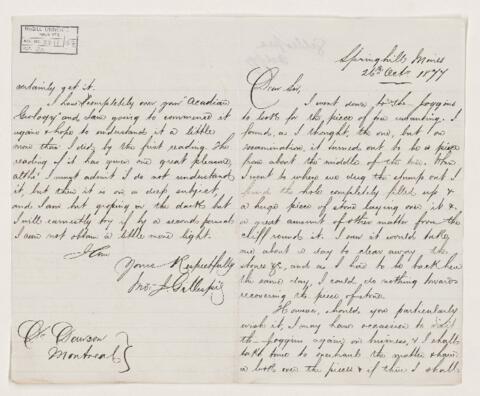 Springhill Mines
26th Oct 1877
Dear Sir,
I went down to the Joggins
to look for the piece of you wanting. I
found, as I thought, the one, but on
examination, it turned out to be a piece
from about the middle of the tree. When
I went to where we dug the stump out I
found the hole completely filled up &
a huge piece of stone laying over it &
a great amount of other matter from the
cliff round it. I saw it would take
me about a day to clear away the
stones &c, and as I had to be back here
the same day, I could do nothing towards
recovering the piece of stone.
However, should you particularly
wish it, I may have occasion to visit
the Joggins again on business, & I shall
take time to the matter
a look over the pieces & if there I shall
certainly get it.
I have completely over your "Acadian
Geology" and am going to commence it
again & hope to understand it a little
more than I did, by the first reading. The
reading of it has given me great pleasure
altho' I must admit I do not understand
it, but then it is on a deep subject,
and I am but groping in the dark but
I will earnestly try if by a second perusal
I can not obtain a little more light.
I am
Yours Respectfully
Jno. J. Gillespie
Dr Dawson
Montreal